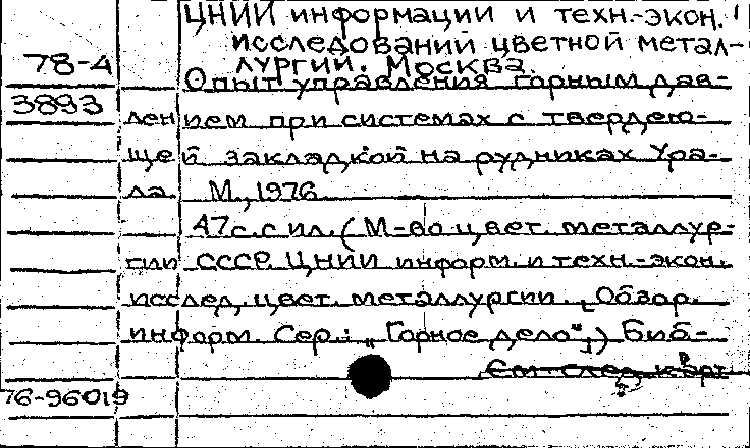 ЦНИИ информации и техн.-экон.
исследований цветной метал-
78-4 лургии. Москва.
Опыт управления горным дав-
3893 лением при системах с твердею-
щей закладкой на рудниках Ура-
ла М., 1976
47 с. с ил. (М-во цвет. металлур-
гии СССР. ЦНИИ информ. и техн.-экон.
исслед. цвет. металлургии. Обзор.
информ. Сер.: „Горное дело“) Биб-
См. след. карт.
76-96019